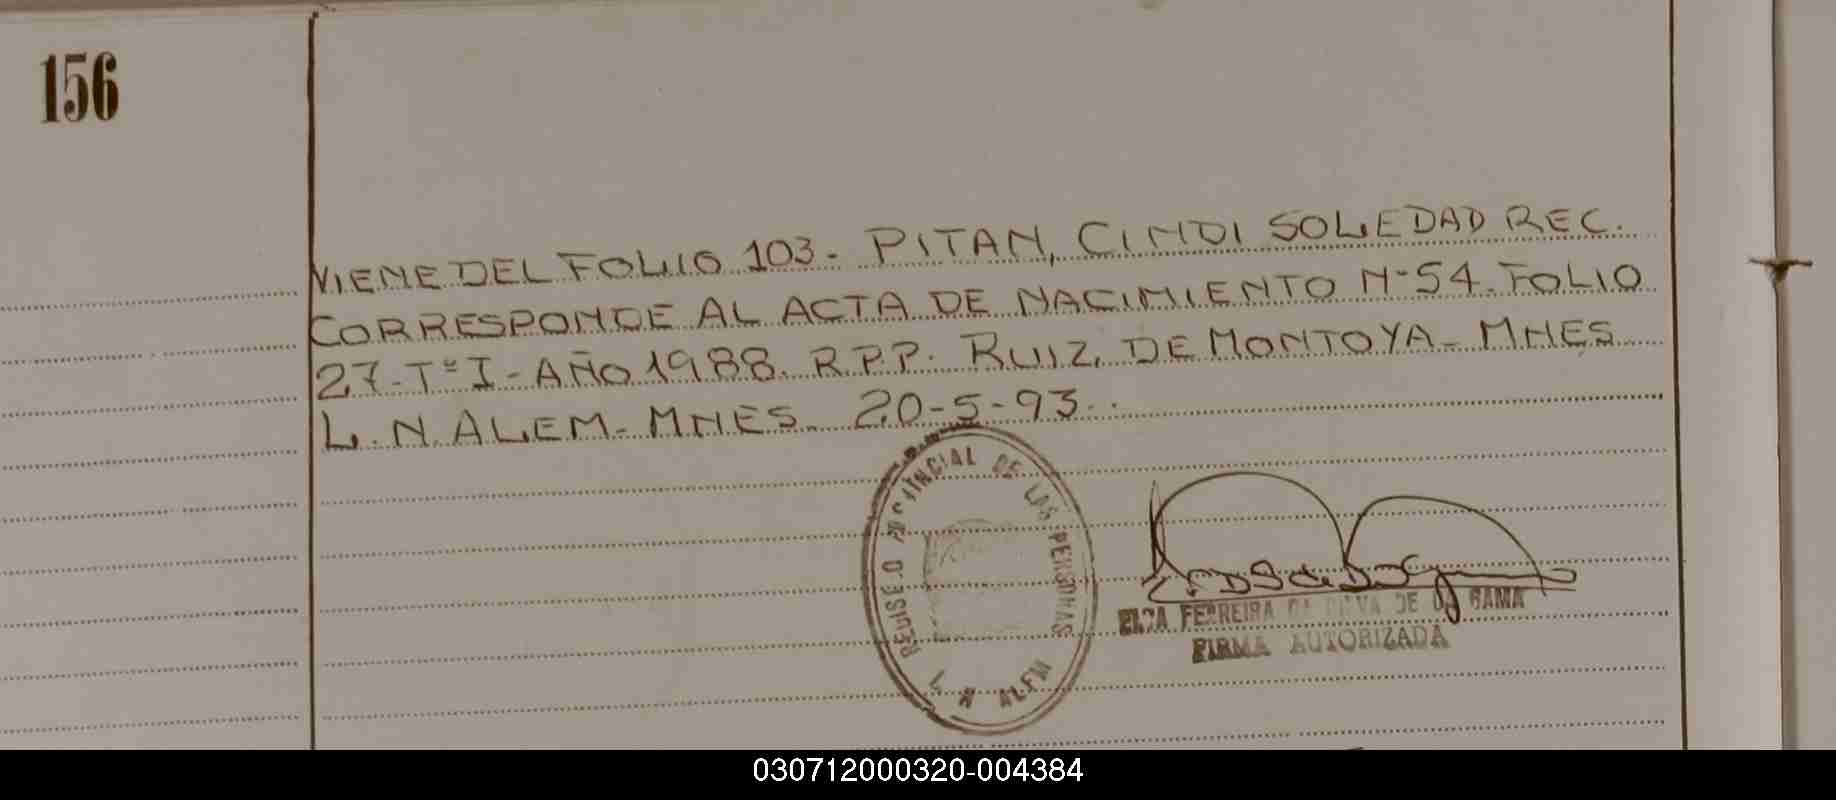 156
VIENE DEL FOLIO 103. PITAN, CINDI SOLEDAD REC.
CORRESPONDE AL ACTA DE NACIMIENTO Nº 54. FOLIO
27. Tº I - AÑO 1988. R.P.P. RUIZ DE MONTOYA - MNES
L. N. ALEM - MNES. 20-5-93.
REGISTRO PROVINCIAL DE LOS PERSONAS
L N ALEM
FERREIRA DE
FIRMA AUTORIZADA
030712000320-004384